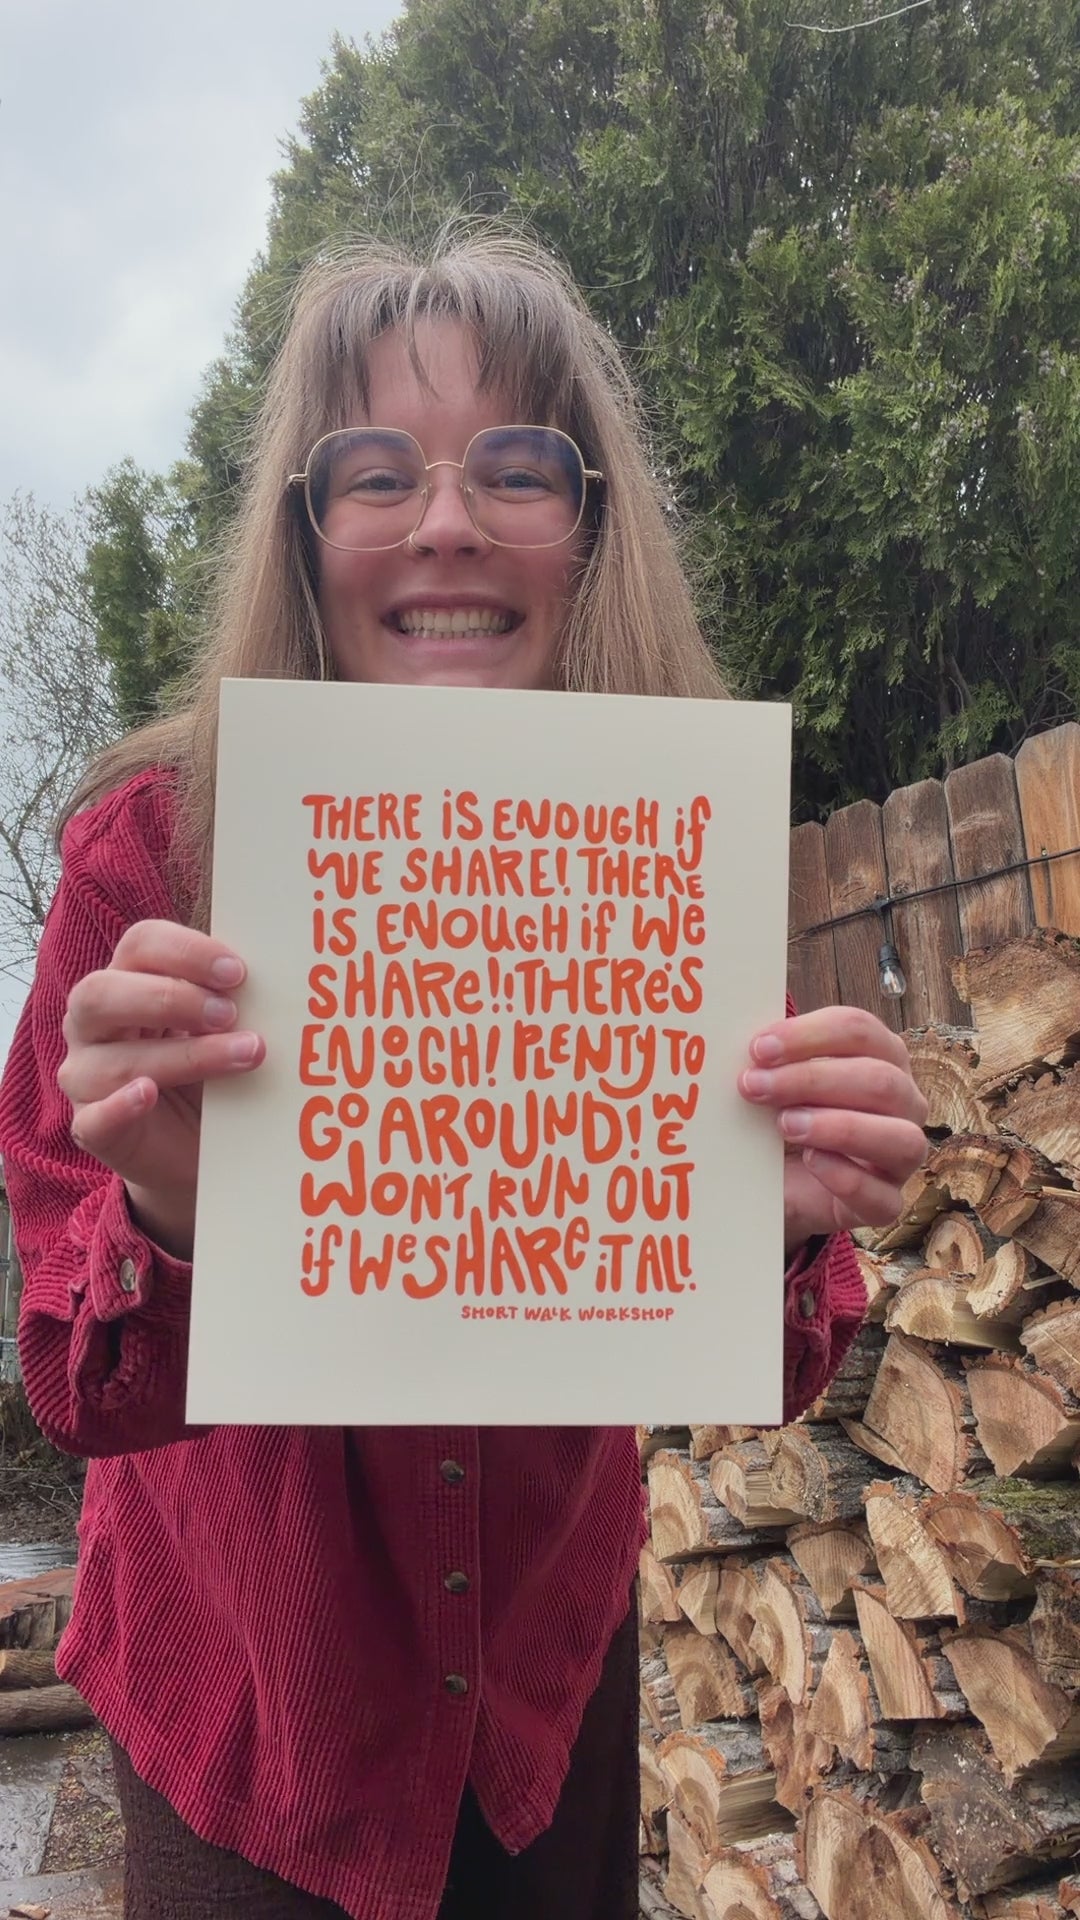 THERE iS ENOUGH if
WE SHARE! THERE
iS ENOUGH if We
SHARe!! THEReS
ENOUGH! PLENTY TO
GO AROUND! WE
WON'T RUN OUT
if WeSHARe iT ALL!
SHORT WALK WORKSHOP